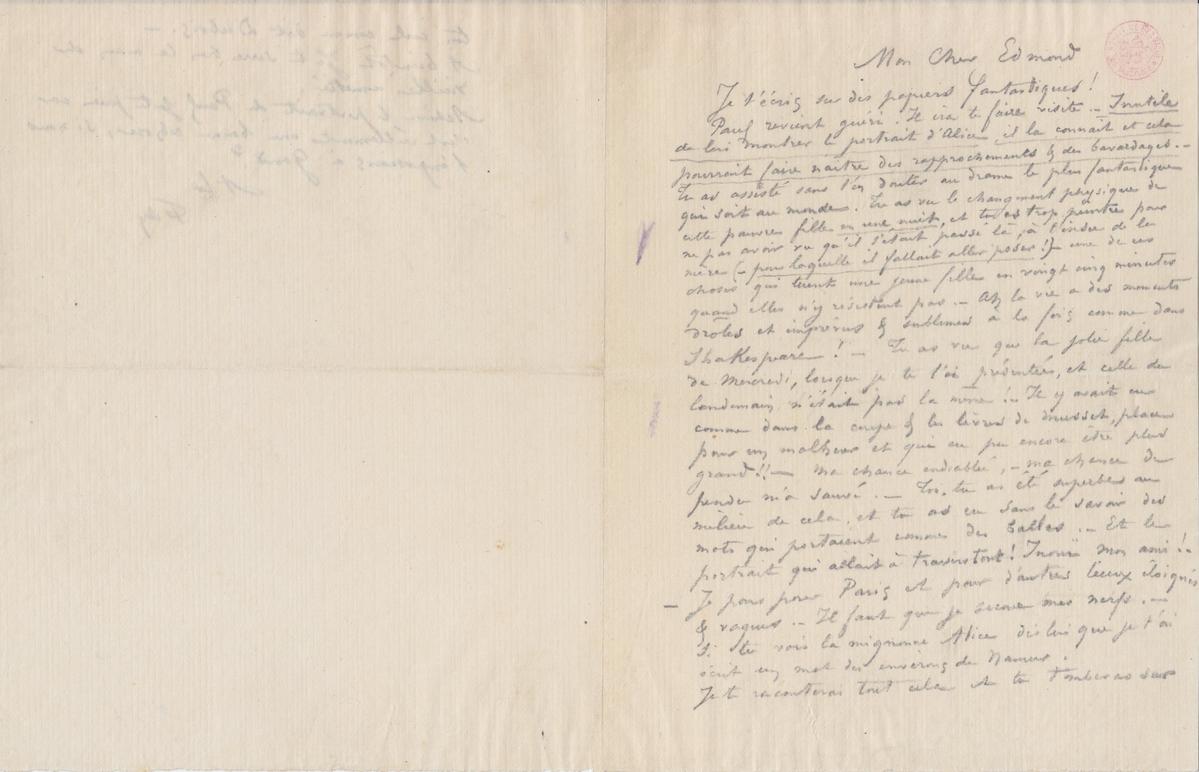 Mon Cher Edmond
Je t'écris sur des papiers fantastiques!
Paul revient guéri. Il ira te faire visite. – Inutile
de lui montrer le portrait d'Alice il la connait et cela
pourrait faire naitre des rapprochements & des bavardages. –
Tu as assisté sans t'en douter au drame le plus fantastique
qui soit au monde. Tu as vu le changment physique de
cette pauvre fille en une nuit, et tu es trop peintre pour
ne pas avoir vu qu'il s'était passé là, à l'insu de la
mère (– pour laquelle il fallait aller poser!) – une de ces
choses qui tuent une jeune fille en vingt cinq minutes
quand elles n'y résistent pas. – Ah la vie a des moments
drôles et imprévus & sublimes à la fois comme dans
Shakespeare! – Tu as vu que la jolie fille
de Mercredi, lorsque je te l'ai présentée, et celle du
lendemain n'était pas la même!. Il y avait eu
comme dans la coupe & les lèvres de Musset, place
pour un malheur et qui eu pu encore être plus
grand!! – Ma chance endiablée, – ma chance de
pendu m'a sauvé. – Toi, tu as été superbe au
milieu de cela, et tu as eu sans le savoir des
mots qui portaient comme des balles. – Et le
portrait qui allait à travers tout! Inouï mon ami!
– Je pars pour Paris et pour d'autres lieux éloignés
& vagues. – Il faut que je secoue mes nerfs. –
Si tu vois la mignonne Alice dis lui que je t'ai
écrit un mot des environs de Namur.
Je te raconterai tout cela et tu tomberas sur